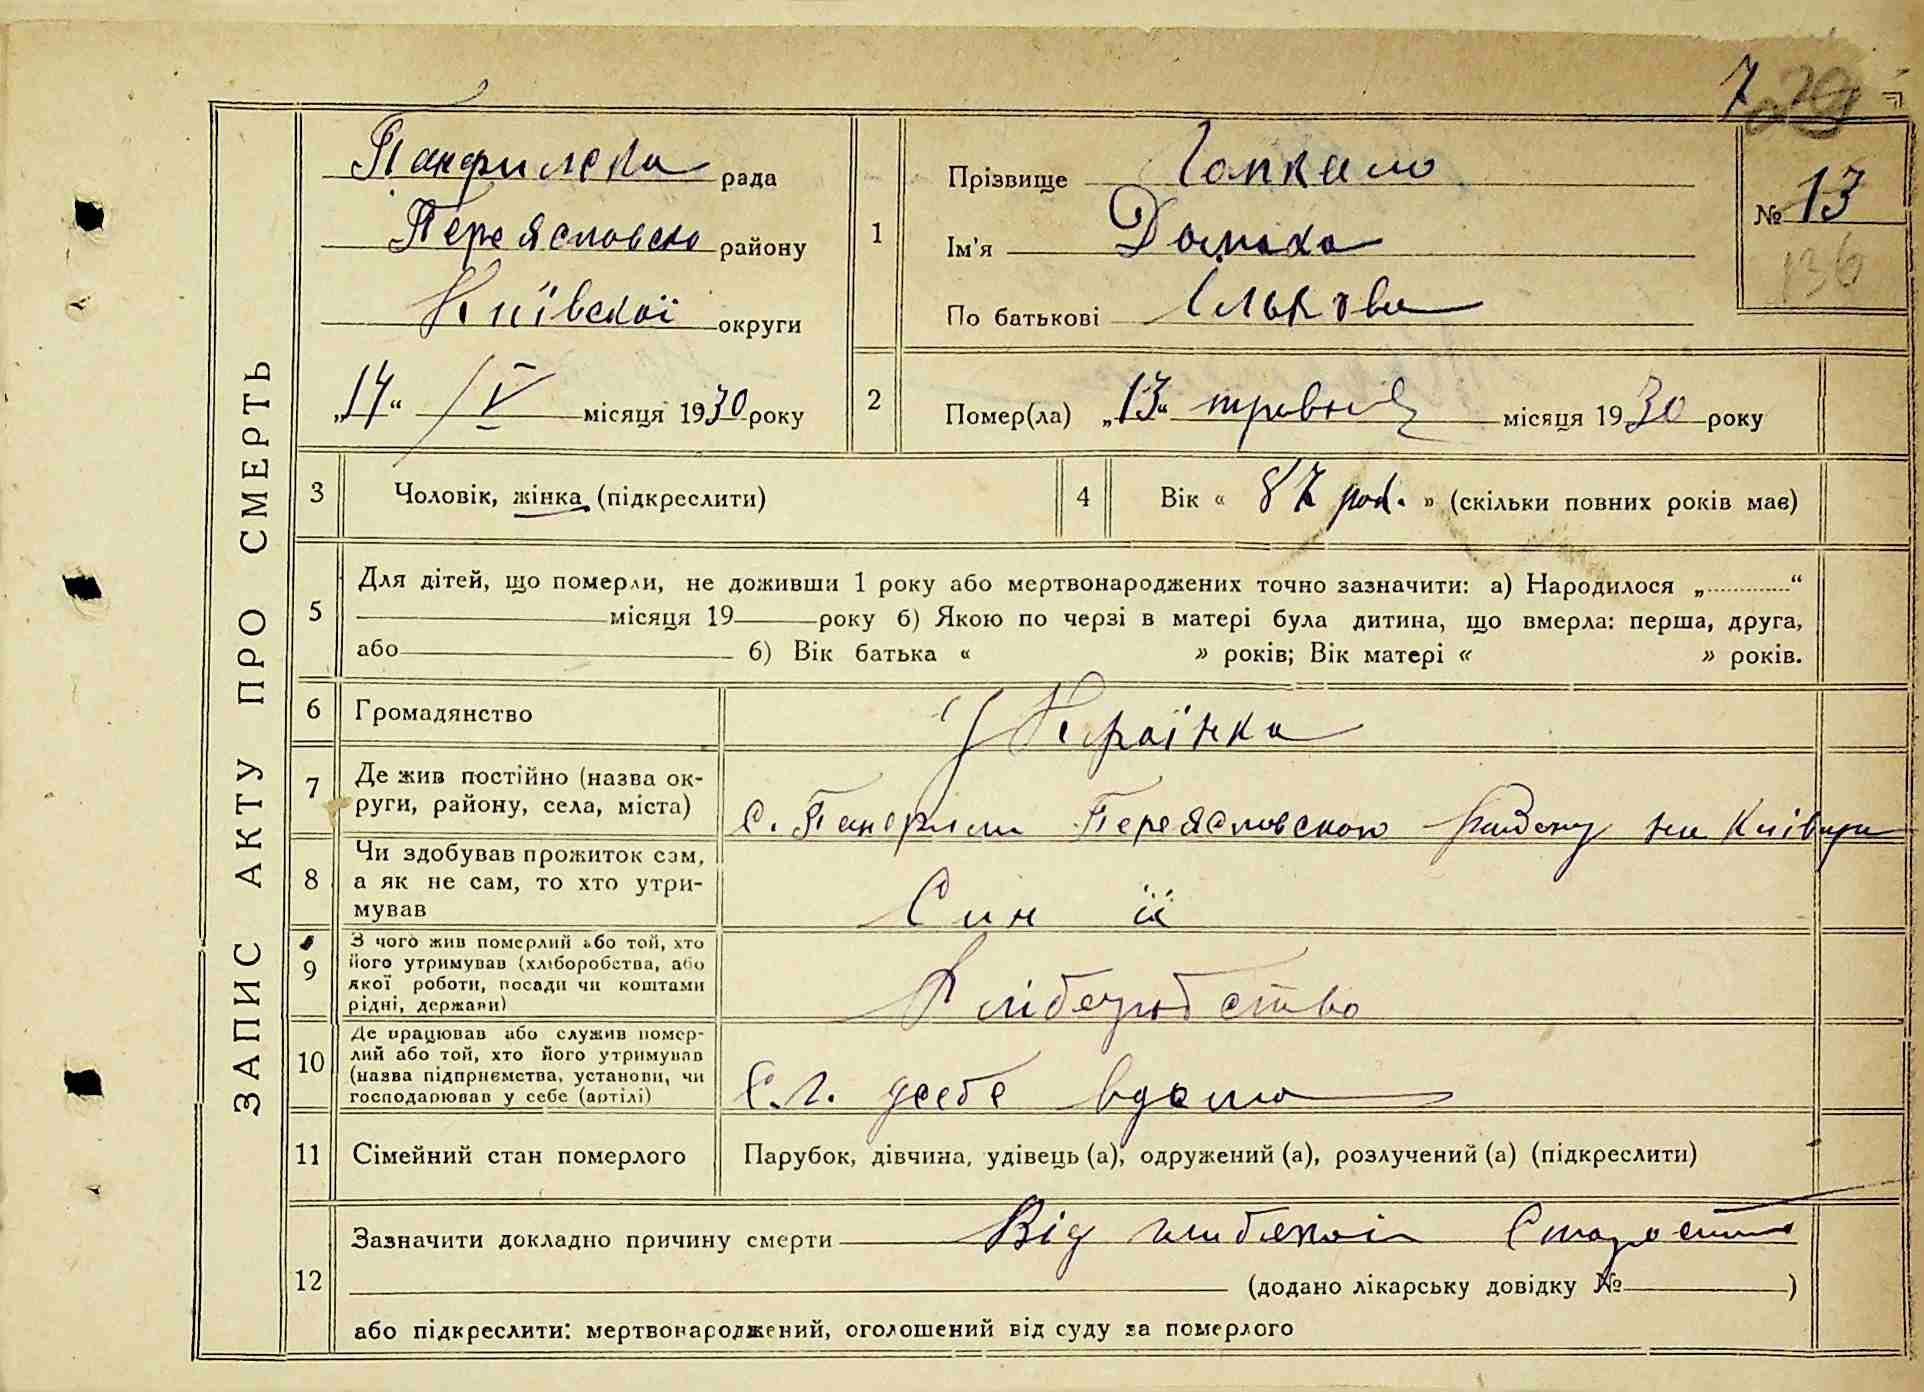 ЗАПИС АКТУ ПРО СМЕРТЬ
7
29
Панфилська рада
Переяславсько району
Київської округи
„14“ V місяця 1930 року
1
Прізвище Гопкало
Ім'я Домаха
По батькові Ількова
№ 13
136
2
Помер(ла) „13“ травня місяця 1930 року
3
Чоловік, жінка (підкреслити)
4
Вік « 87 рок. » (скільки повних років має)
5
Для дітей, що померли, не доживши 1 року або мертвонароджених точно зазначити: а) Народилося „ “
місяця 19 року б) Якою по черзі в матері була дитина, що вмерла: перша, друга,
або б) Вік батька « » років; Вік матері « » років.
6
Громадянство
Українка
7
Де жив постійно (назва ок-
руги, району, села, міста)
с. Панфили Переясловського району на Київщи
8
Чи здобував прожиток сам,
а як не сам, то хто утри-
мував
Син її
9
З чого жив померлий або той, хто
його утримував (хліборобства, або
якої роботи, посади чи коштами
рідні, держави)
Хліборобство
10
Де працював або служив помер-
лий або той, хто його утримував
(назва підприємства, установи, чи
господарював у себе (артілі)
С.г. усебе вдома
11
Сімейний стан померлого
Парубок, дівчина, удівець (а), одружений (а), розлучений (а) (підкреслити)
12
Зазначити докладно причину смерти Від глибокої старости
(додано лікарську довідку № )
або підкреслити: мертвонароджений, оголошений від суду за померлого